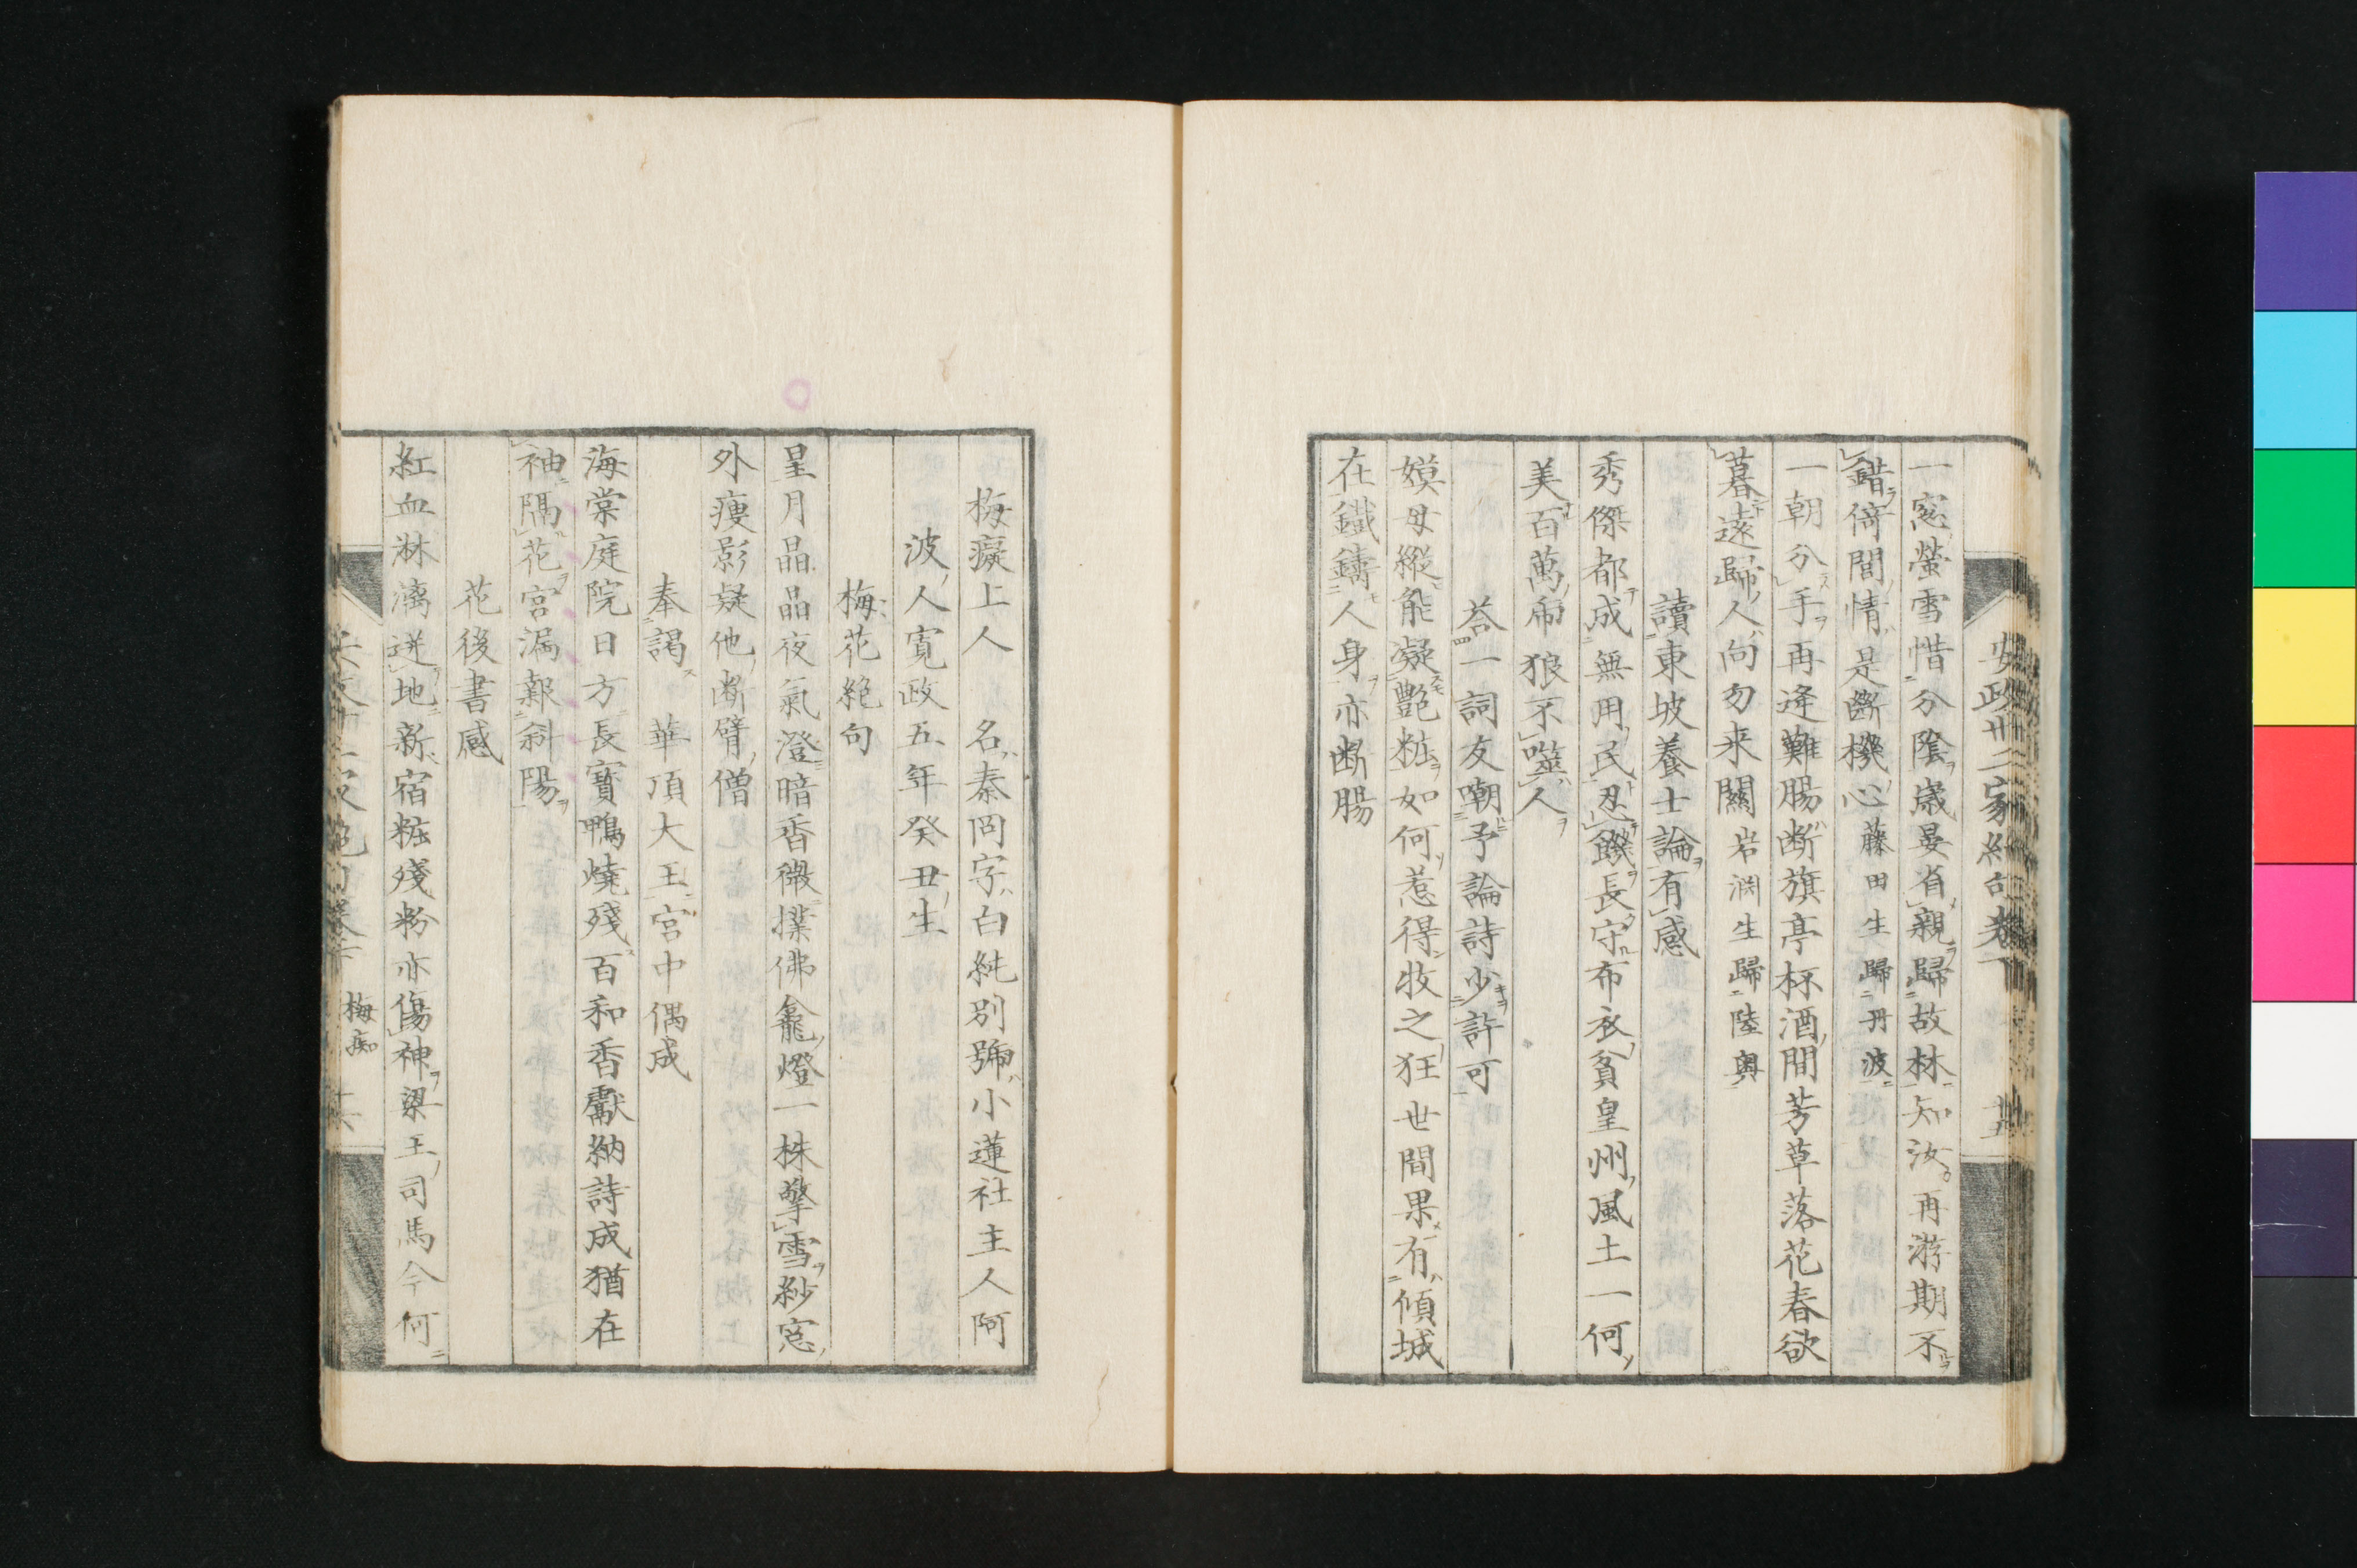 安政卅二家絶句卷下
一窓螢雪惜分陰歳晏省親歸故林知汝再游期不
錯倚閭情是斷機心藤田生歸丹波
一朝分手再逢難腸断旗亭杯酒間芳草落花春欲
暮遠歸人向勿来關岩渕生歸陸奥
讀東坡養士論有感
秀傑都成無用民忍鐖長守布衣貧皇州風土一何
美百萬帍狼不噬人
荅一詞友嘲予論詩少許可
嫫母縱能凝艶粧如何惹得牧之狂世間果有傾城
在鐵鑄人身亦断腸
梅癡上人 名秦冏字白純別號小蓮社主人阿
波人寛政五年癸丑生
梅花絶句
星月晶晶夜氣澄暗香微撲佛龕燈一株擎雪紗窓
外瘦影疑他断臂僧
奉謁 華頂大王宮中偶成
海棠庭院日方長寶鴨燒殘百和香獻納詩成猶在
袖隔花宮漏報斜陽
花後書感
紅血淋漓迸地新宿粧殘粉亦傷神梁王司馬今何
梅痴